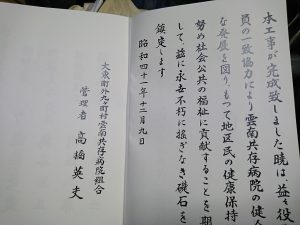 本工事が完成致しました暁は、益々役
員の一致協力により雲南共存病院の健全
な発展を図り、もつて地区民の健康保持
に努め社会公共の福祉に貢献することを期
して、茲に永世不朽に揺ぎなき礎石を
鎮定します
昭和四十一年十二月九日
大東町外九ヶ町村雲南共存病院組合
管理者 高橋英夫